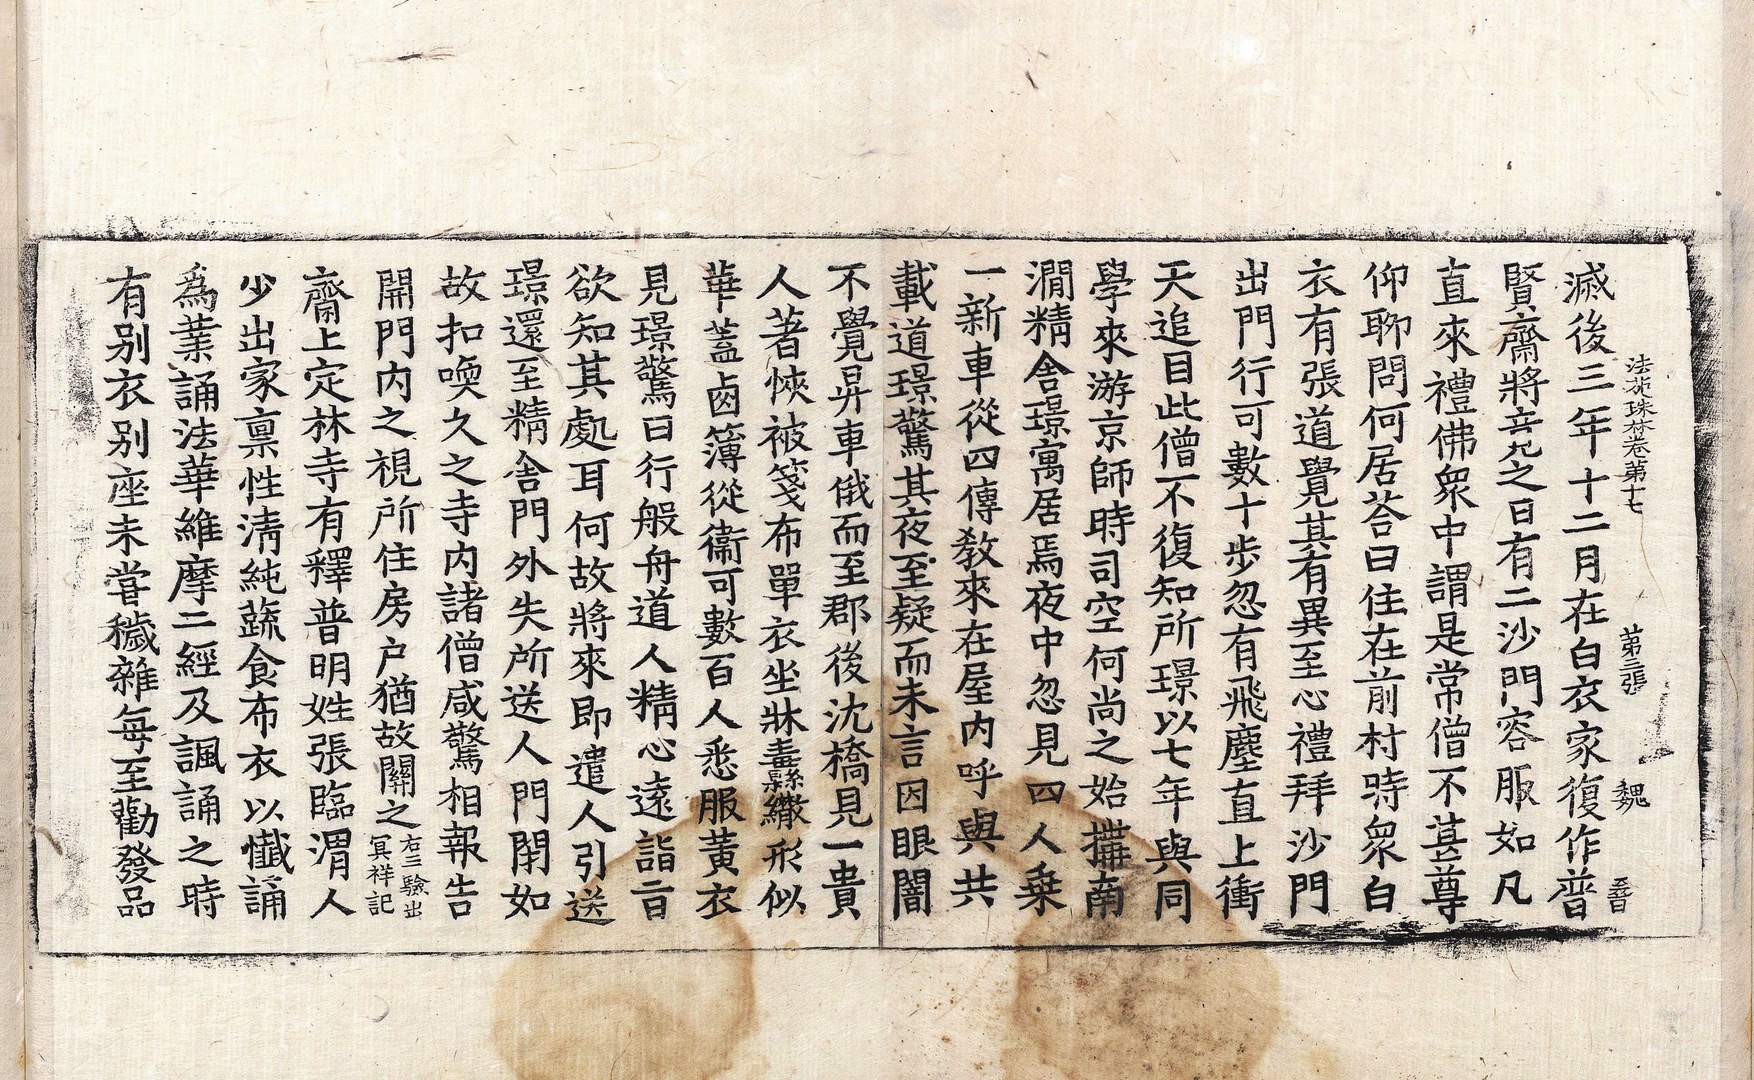 法苑珠林卷第十七 第三張 魏
晉
滅後三年十二月在白衣家復作普
賢齋將竟之日有二沙門容服如凡
直來禮佛眾中謂是常僧不甚尊
仰聊問何居荅曰住在前村時眾白
衣有張道覺其有異至心禮拜沙門
出門行可數十步忽有飛塵直上衝
天追目此僧不復知所璟以七年與同
學來游京師時司空何尚之始搆南
澗精舍璟寓居焉夜中忽見四人乗
一新車從四傳敎來在屋内呼與共
載道璟驚其夜至疑而未言因眼闇
不覺昇車俄而至郡後沈橋見一貴
人著帢被箋布單衣坐牀燾繖形似
華蓋鹵簿從衞可數百人悉服黃衣
見璟驚曰行般舟道人精心遠詣旨
欲知其處耳何故將來即遣人引送
璟還至精舍門外失所送人門閉如
故扣喚久之寺内諸僧咸驚相報告
開門内之視所住房户猶故關之右三驗出冥祥記
齋上定林寺有釋普明姓張臨渭人
少出家稟性清純蔬食布衣以懺誦
為業誦法華維摩二經及諷誦之時
有别衣别座未嘗穢雜每至勸發品